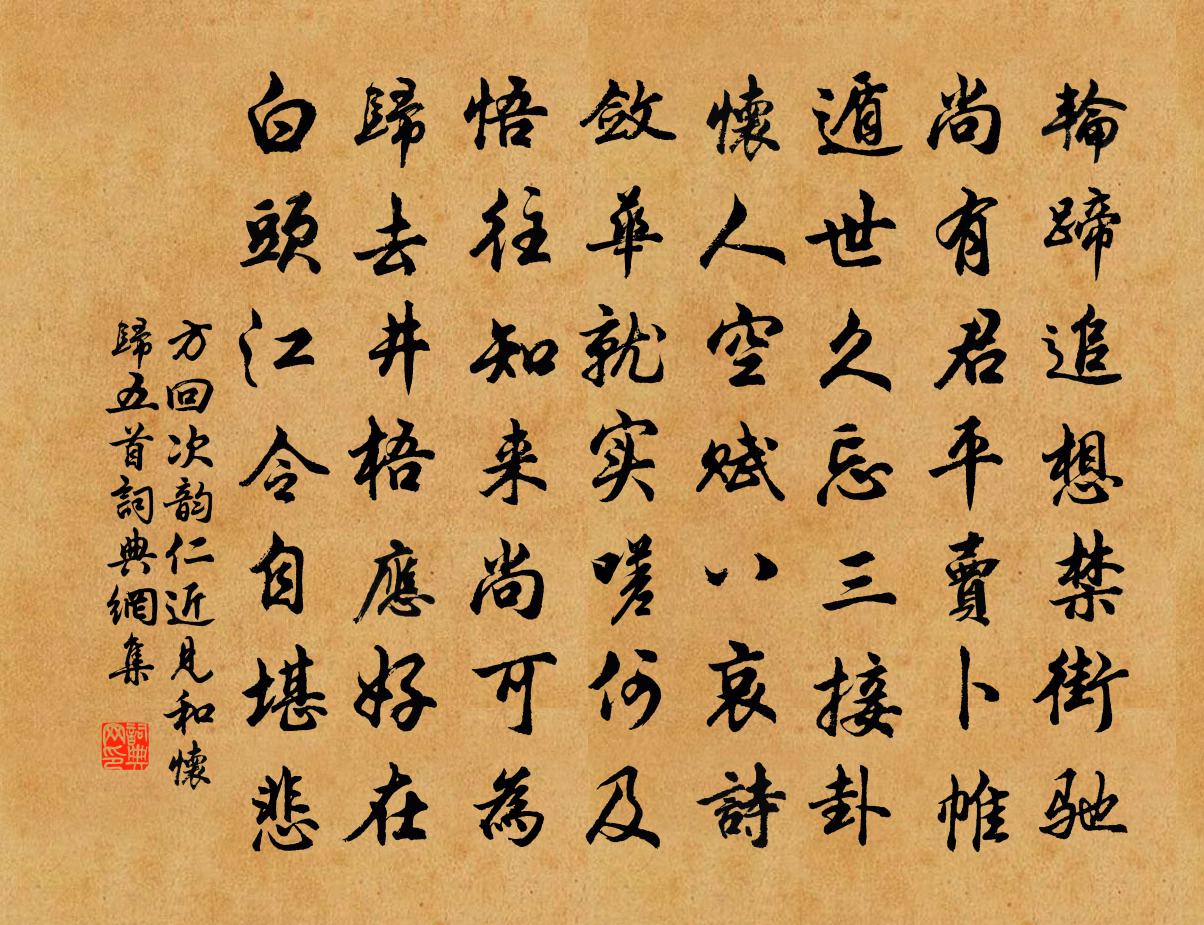 輪蹄追想禁街馳
尚有君平賣卜帷
遁世久忘三接卦
懷人空賦八哀詩
斂華就实嗟何及
悟往知来尚可為
歸去井梧應好在
白頭江令自堪悲
方回次韵仁近見和懷
歸五首詞典網集
詞典网印